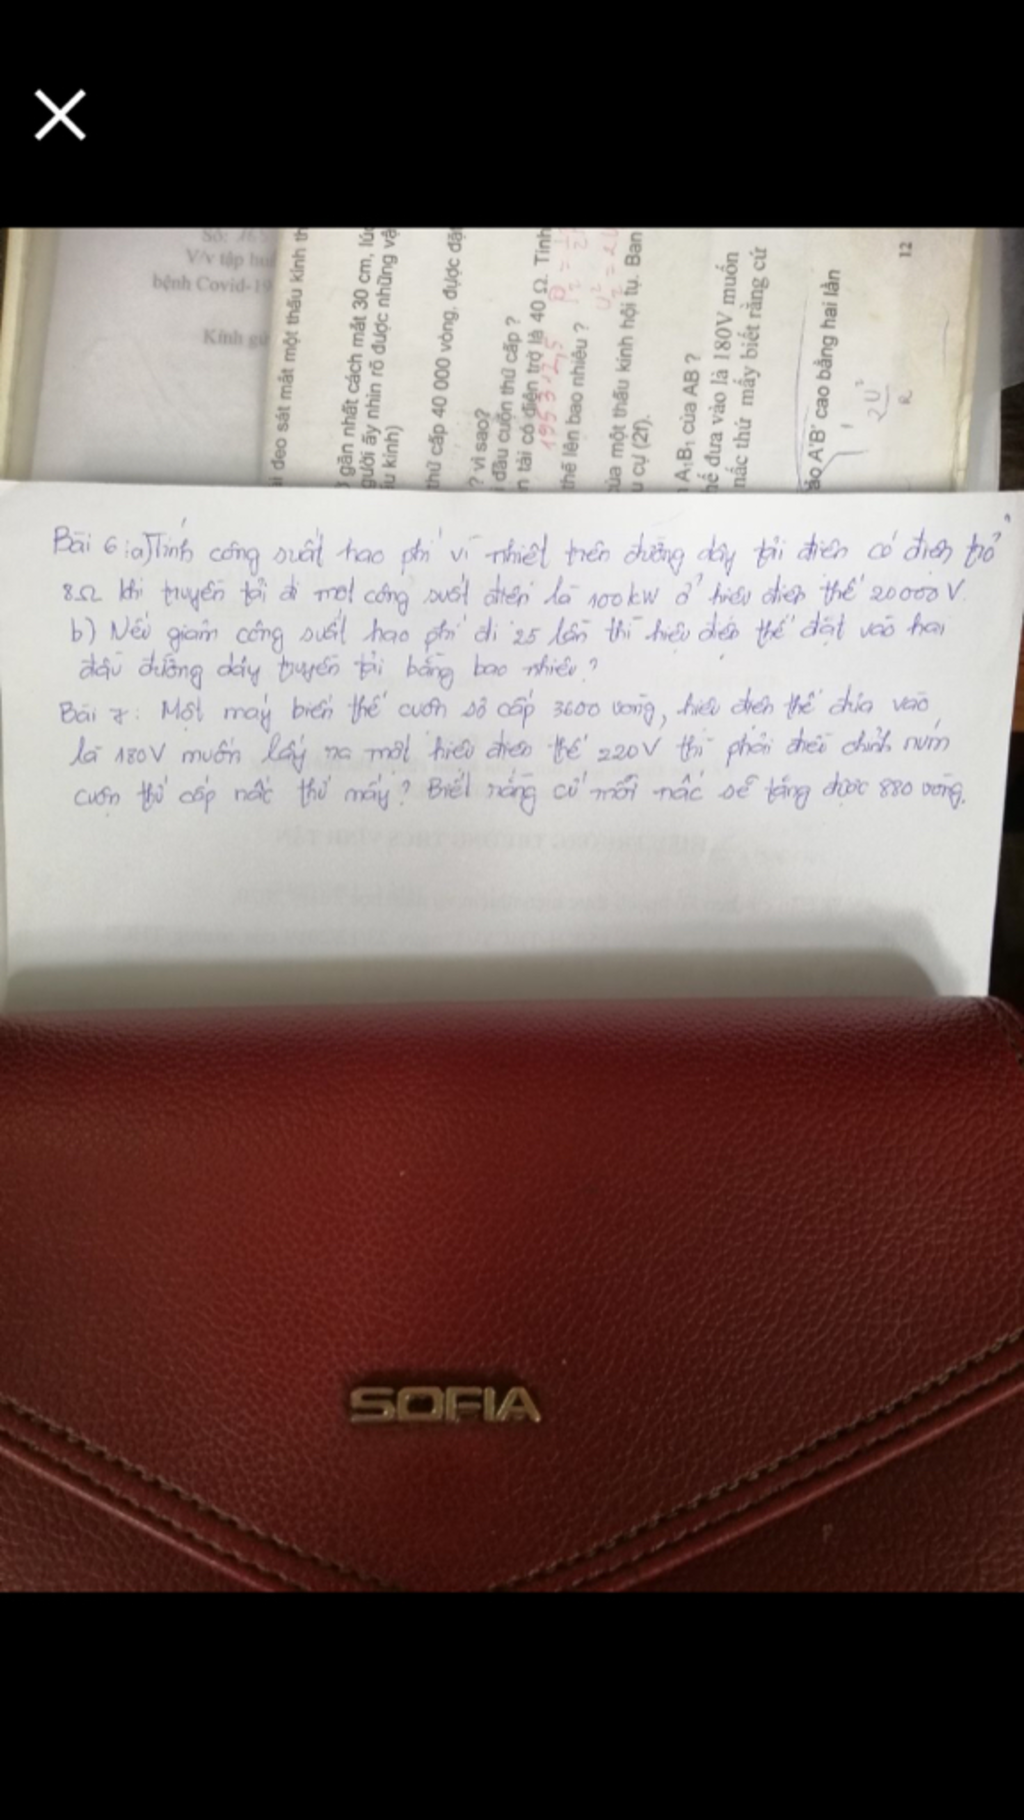 Số:
V/v tập hu
bệnh Covid-19
Kính gử
deo sát mắt một thấu kính th
gần nhất cách mắt 30 cm, lúc
gười ấy nhìn rõ được những vậ
u kính)
thứ cấp 40 000 vòng, được đặ
? vì sao?
đầu cuộn thứ cấp ?
n tải có điện trở là 40 Ω. Tính
thế lên bao nhiêu ?
ủa một thấu kính hội tụ. Ban
u cự (2f).
A₁B₁ của AB ?
hế đưa vào là 180V muốn
nấc thứ mấy biết rằng cứ
ảo A'B' cao bằng hai lần
12
2U²
R
Bài 6: a) Tính công suất hao phí vì nhiệt trên đường dây tải điện có điện trở
8Ω khi truyền tải đi một công suất điện là 100kW ở hiệu điện thế 20000V.
b) Nếu giảm công suất hao phí đi 25 lần thì hiệu điện thế đặt vào hai
đầu đường dây truyền tải bằng bao nhiêu?
Bài 7: Một máy biến thế cuộn sơ cấp 3600 vòng, hiệu điện thế đưa vào
là 180V muốn lấy ra một hiệu điện thế 220V thì phải điều chỉnh núm
cuộn thứ cấp nấc thứ mấy? Biết rằng cứ mỗi nấc sẽ tăng được 880 vòng.
SOFIA